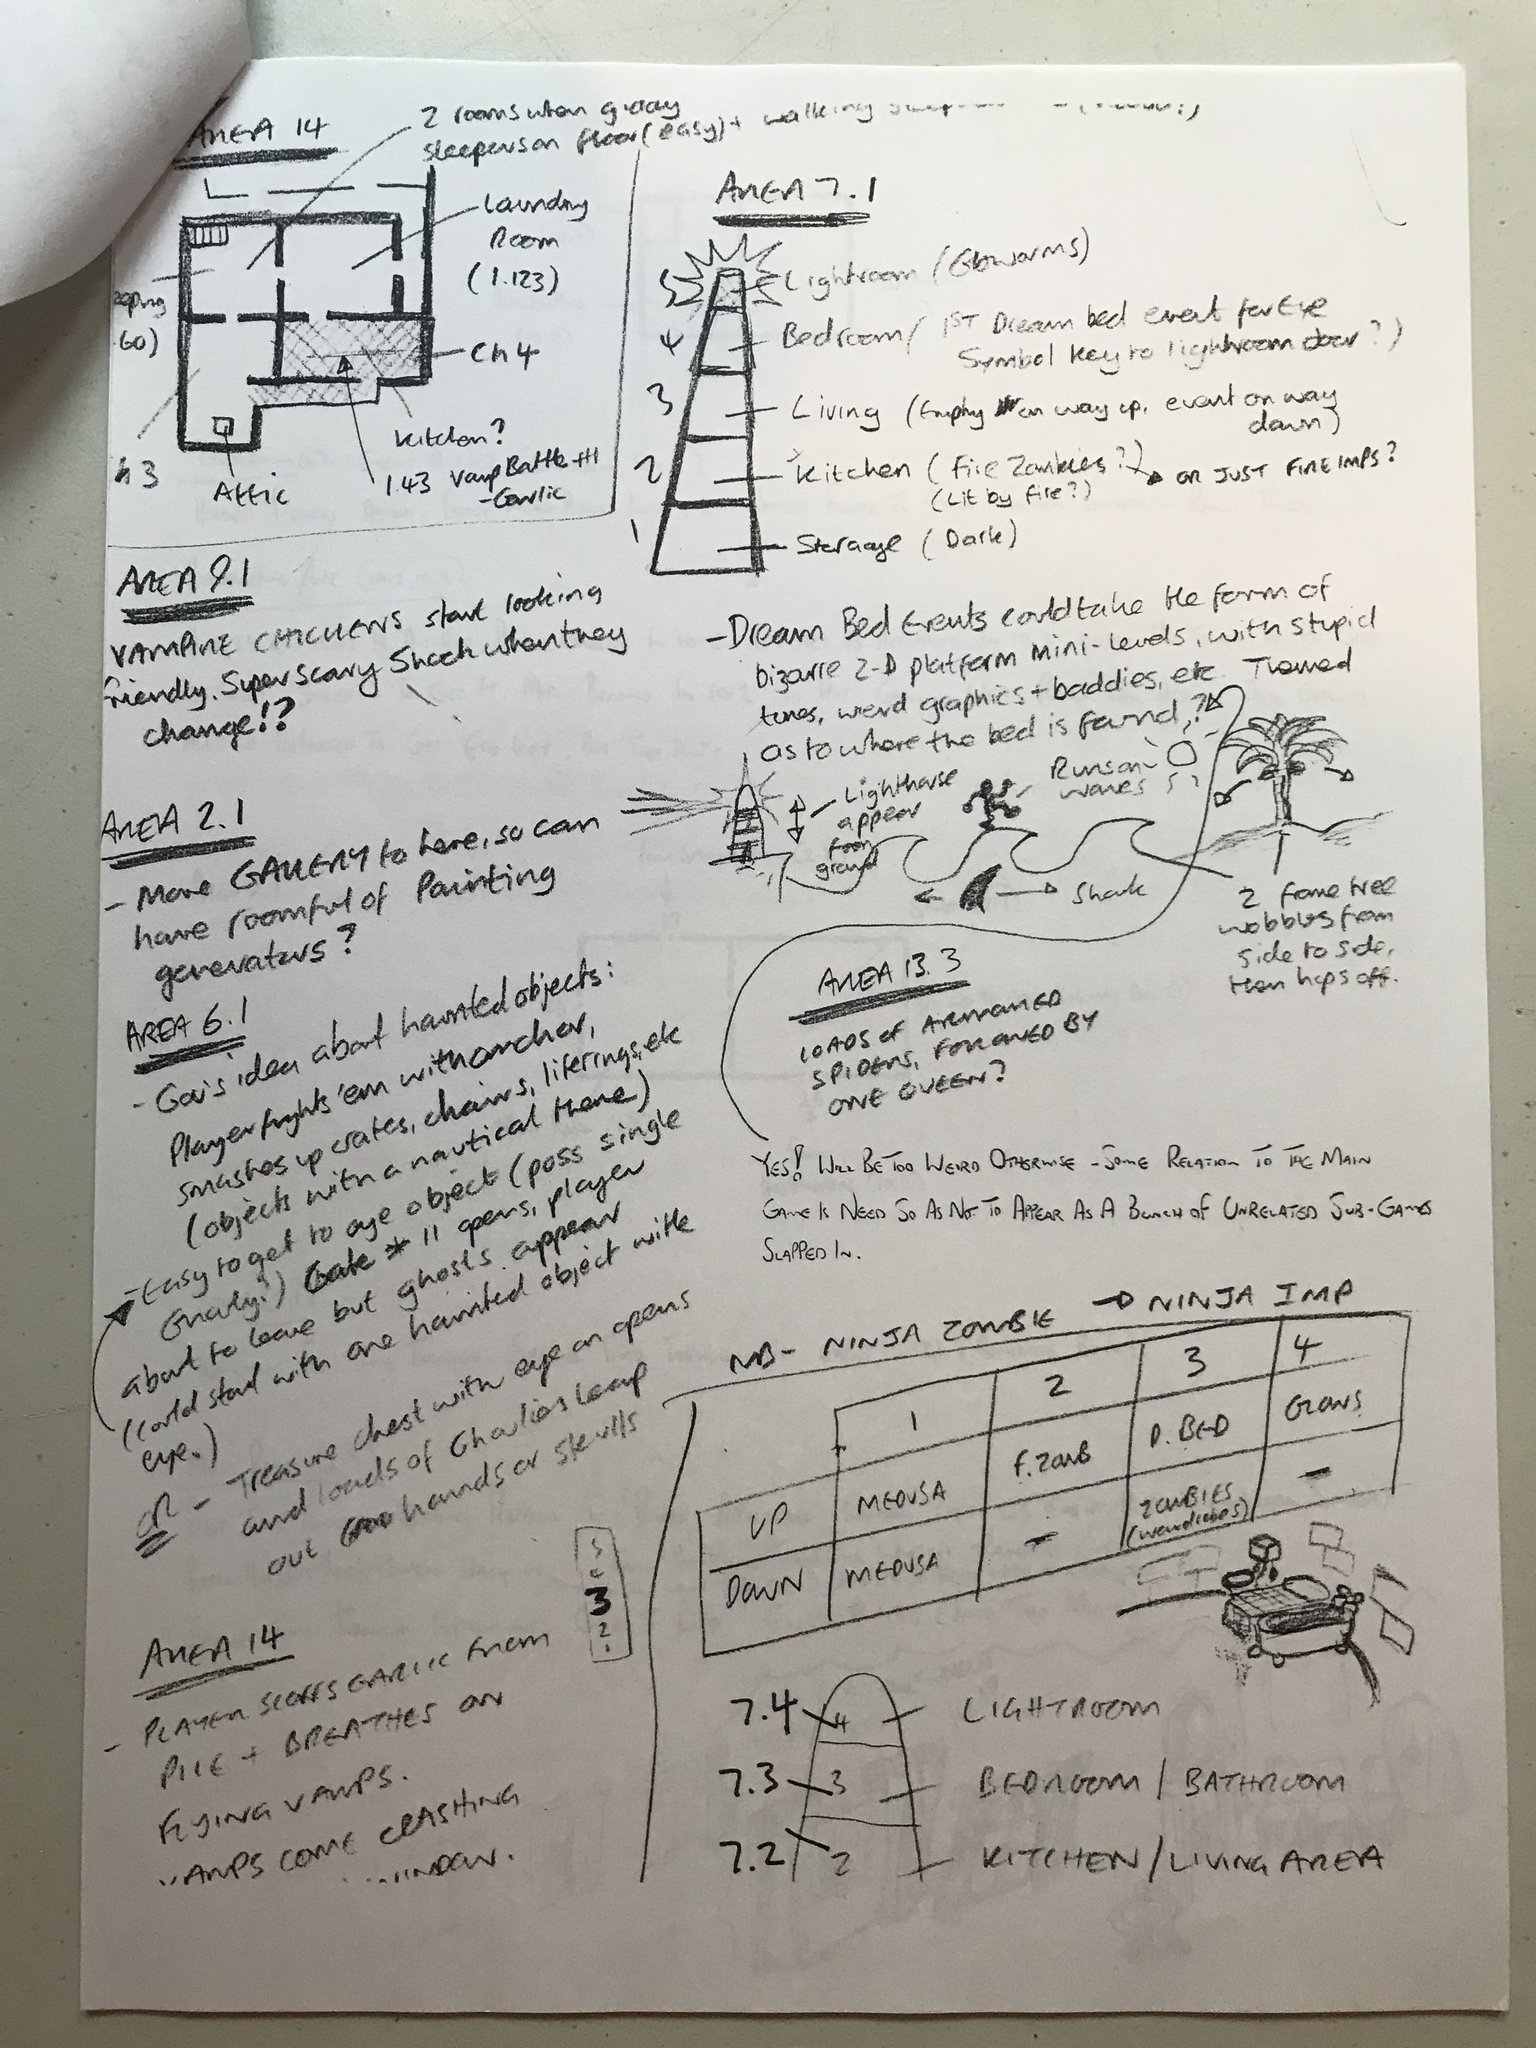 AREA 14
2 rooms when
sleepers on floor (easy) + walking
Laundry
Room
(1.123)
Ch 4
Kitchen?
1.43 Vamp Battle
-Garlic
Attic
AREA 7.1
5
Lightroom (Gloworms)
4
Bedroom ( 1ST Dream bed event for Eye
Symbol key to lightroom door?)
3
Living (Empty on way up, event on way
down)
2
Kitchen (Fire Zombies?) OR JUST FIRE IMPS?
(Lit by fire?)
1
Storage (Dark)
AREA 9.1
VAMPIRE CHICKENS start looking
friendly. Super scary Shock when they
change!?
- Dream Bed Events could take the form of
bizarre 2-D platform mini-levels, with stupid
tunes, weird graphics + baddies, etc. Themed
as to where the bed is found,?
Lighthouse
appear
from
ground
Runs on
waves
Shark
2 frame tree
wobbles from
side to side,
then hops off.
AREA 2.1
- Move GALLERY to here, so can
have roomful of Painting
generators?
AREA 6.1
- idea about haunted objects:
Player fights 'em with anchor,
smashes up crates, chairs, liferings, etc
(objects with a nautical theme)
- Easy to get to eye object (poss single
Ghouly?) Gate * 11 opens, player
about to leave but ghosts appear
(could start with one haunted object with
eye.)
OR - Treasure chest with eye on opens
and loads of Ghoulies leap
out hands or skulls
3
2
AREA 13.3
LOADS OF ARMOURED
SPIDERS, FOLLOWED BY
ONE QUEEN?
YES! WILL BE TOO WEIRD OTHERWISE - SOME RELATION TO THE MAIN
GAME IS NEED SO AS NOT TO APPEAR AS A BUNCH OF UNRELATED SUB-GAMES
SLAPPED IN.
NB- NINJA ZOMBIE → NINJA IMP
1 2 3 4
UP MEDUSA F. ZOMB D. BED GLOWS
DOWN MEDUSA - ZOMBIES -
(wardrobes)
AREA 14
- PLAYER SCOFFS GARLIC FROM
PILE + BREATHES ON
FLYING VAMPS.
VAMPS COME CRASHING
WINDOW.
7.4 4 LIGHTROOM
7.3 3 BEDROOM / BATHROOM
7.2 2 KITCHEN / LIVING AREA